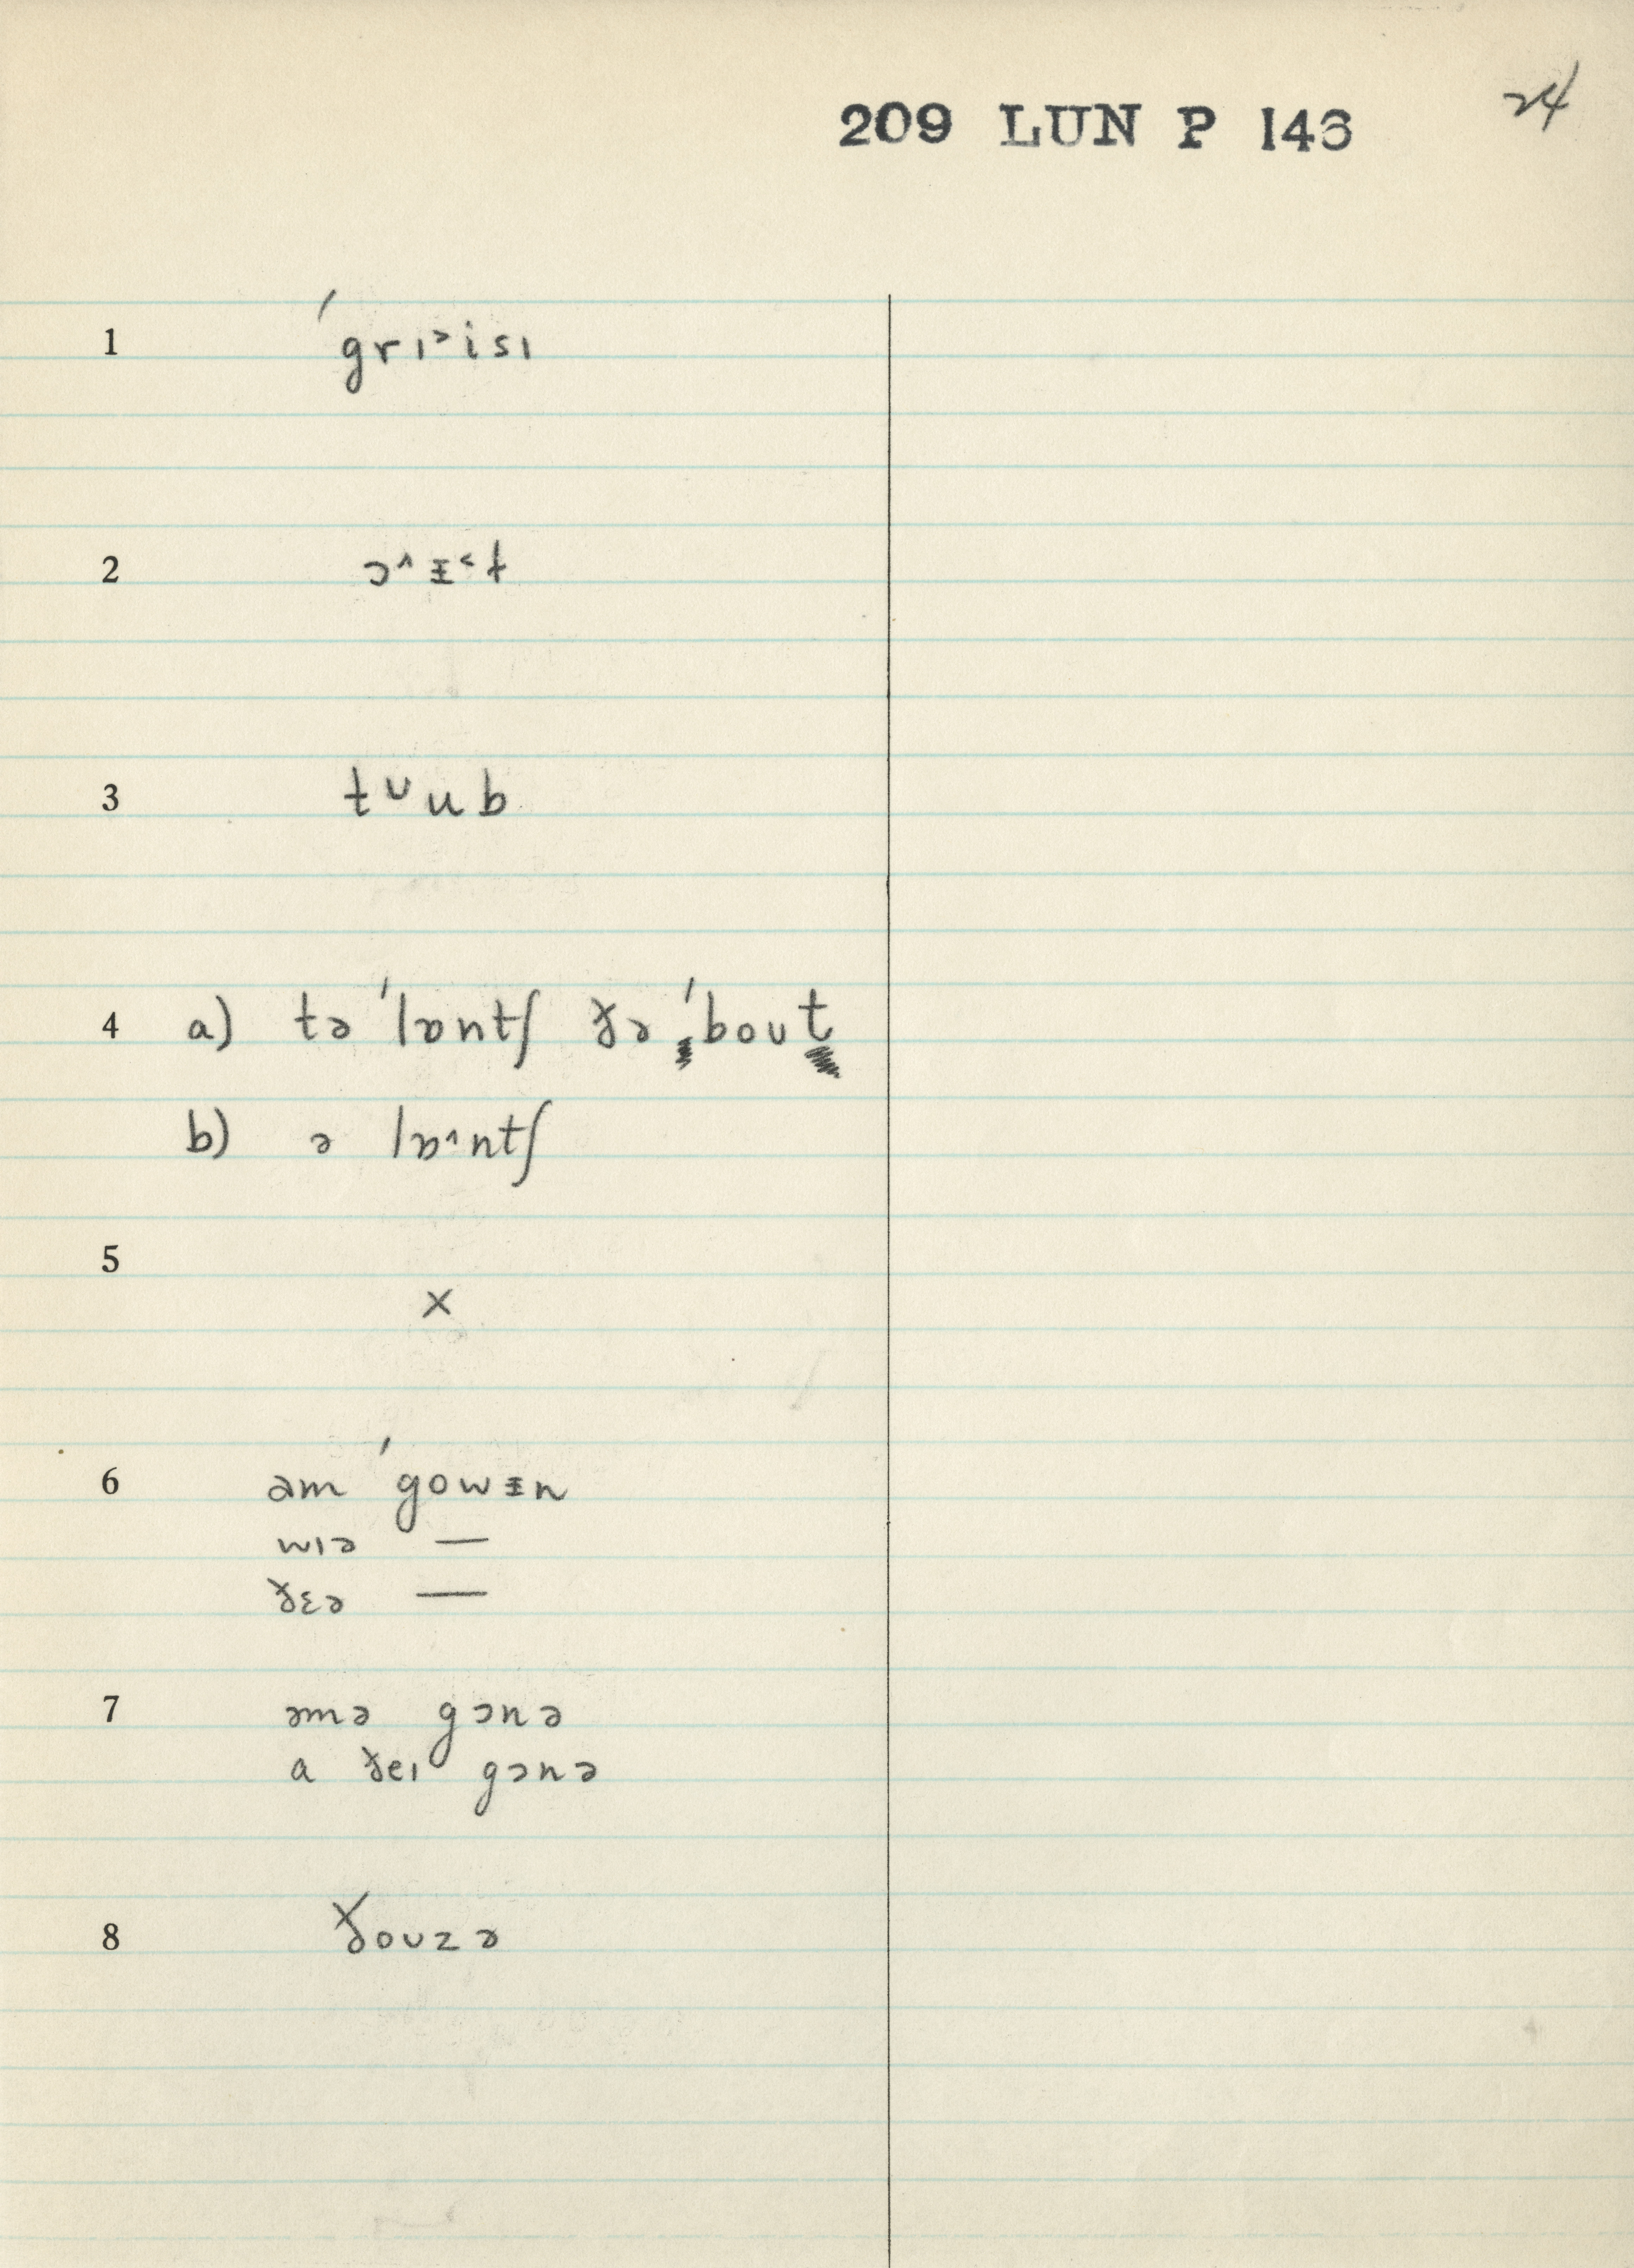 209 LUN P 146 24
1 ˈgrɪ˃isɪ
2 ɔ˄ɪ̵˂t
3 tᶷub
4 a) tə ˈlɒntʃ ðə ˈboʊt
b) ə lɒ˄ntʃ
5 x
6 əm ˈgowɪ̵n
wɪə —
ðɛə —
7 əmə gɔnə
a ðeɪ gɔnə
8 ðoʊzə